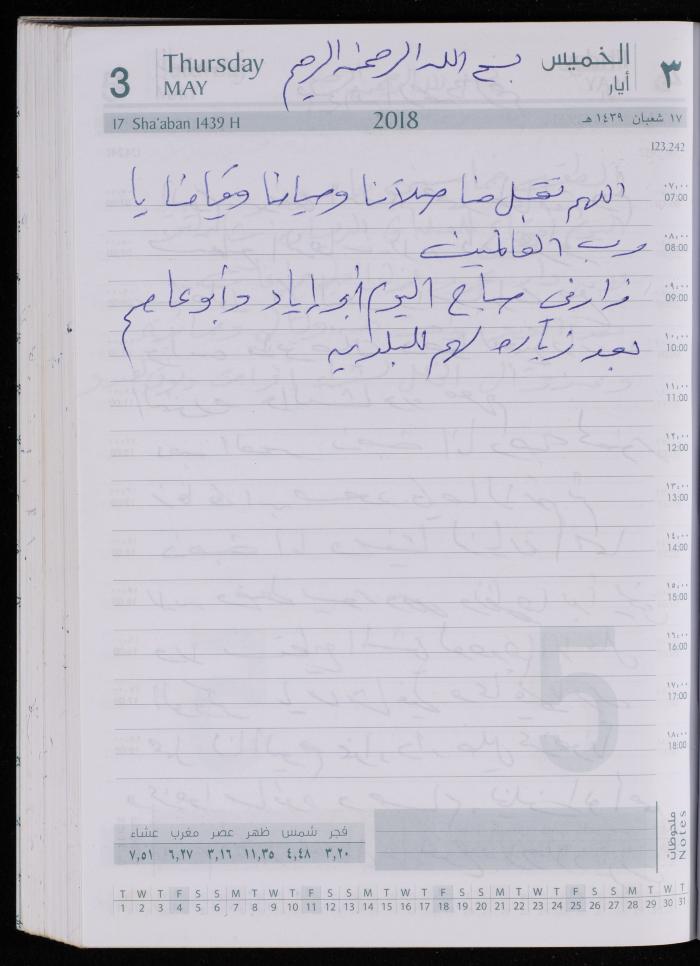 3 Thursday MAY
بسم الله الرحمن الرحيم
الخميس ٣
أيار
17 Sha'aban 1439 H 2018 ١٧ شعبان ١٤٣٩ هـ
123.242
٠٧:٠٠
07:00
اللهم تقبل منا صلاتنا وصيامنا وقيامنا يا
٠٨:٠٠
08:00
رب العالمين
٠٩:٠٠
09:00
زارني صباح اليوم أبو إياد وأبو عاصم
١٠:٠٠
10:00
بعد زيارة لهم للبلدية
١١:٠٠
11:00
١٢:٠٠
12:00
١٣:٠٠
13:00
١٤:٠٠
14:00
١٥:٠٠
15:00
١٦:٠٠
16:00
١٧:٠٠
17:00
١٨:٠٠
18:00
5
ملحوظات
Notes
فجر شمس ظهر عصر مغرب عشاء
٣,٢٠ ٤,٤٨ ١١,٣٥ ٣,١٦ ٦,٢٧ ٧,٥١
T W T F S S M T W T F S S M T W T F S S M T W T F S S M T W T
1 2 3 4 5 6 7 8 9 10 11 12 13 14 15 16 17 18 19 20 21 22 23 24 25 26 27 28 29 30 31